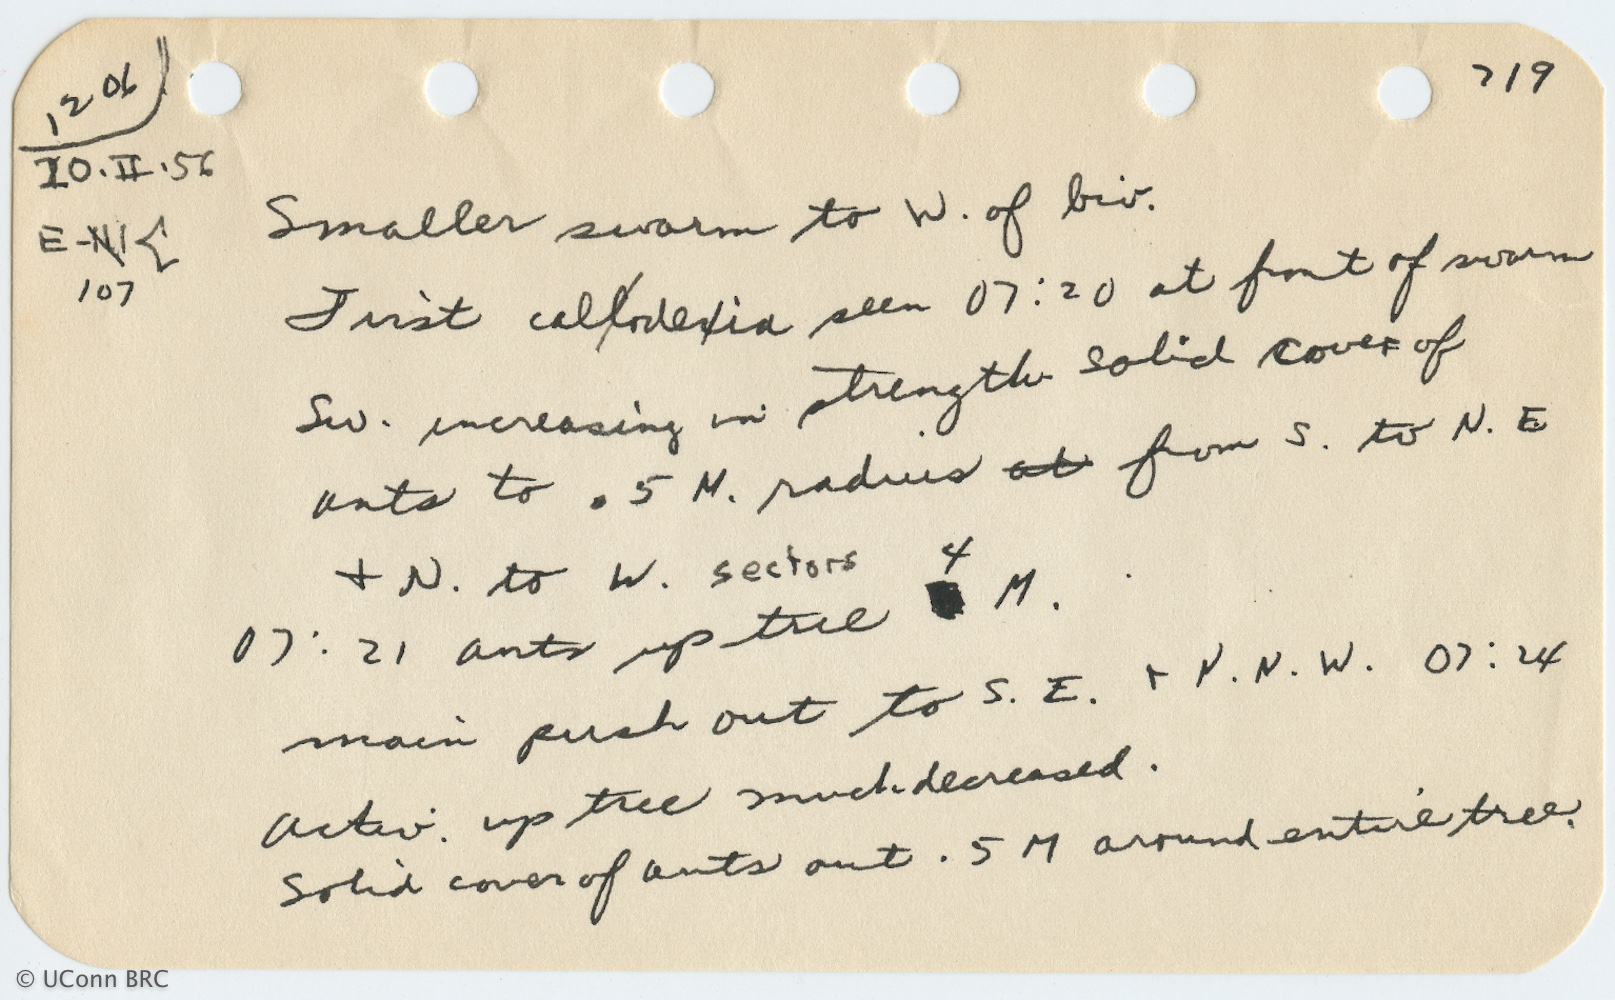 1206
719
10.II.56
E-N
107
Smaller swarm to W. of biv.
First callodexia seen 07:20 at front of swarm
Sw. increasing in strength solid cover of
ants to .5 M. radius at from S. to N. E
+ N. to W. sectors
07:21 ants up tree 4 M.
main push out to S. E. + N. N. W. 07:24
activ. up tree much decreased.
Solid cover of ants out .5 M around entire tree.
© UConn BRC